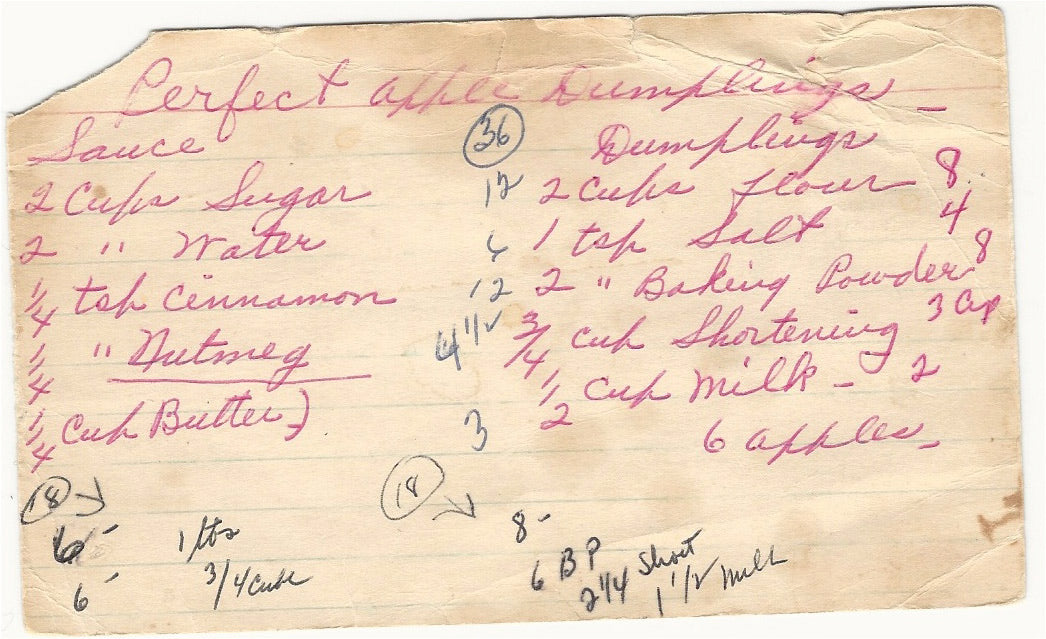 Perfect apple Dumplings -
Sauce
2 Cups Sugar
2 " Water
1/4 tsp Cinnamon
1/4 " Nutmeg
1/4 Cup Butter }
36 Dumplings
12 2 cups flour 8
6 1 tsp Salt 4
12 2 " Baking Powder 8
4 1/2 3/4 cup Shortening 3 Cup
3 1/2 cup Milk - 2
6 apples -
18
6 - 1 1/2 ts
6 - 3/4 Cube
18
8 -
6 B P
2 1/4 Short
1 1/2 Milk